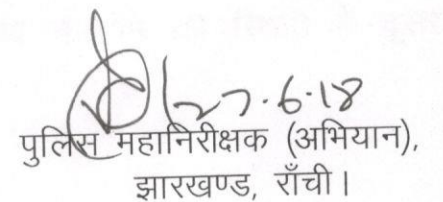 27.6.18
पुलिस महानिरीक्षक (अभियान),
झारखण्ड, राँची।